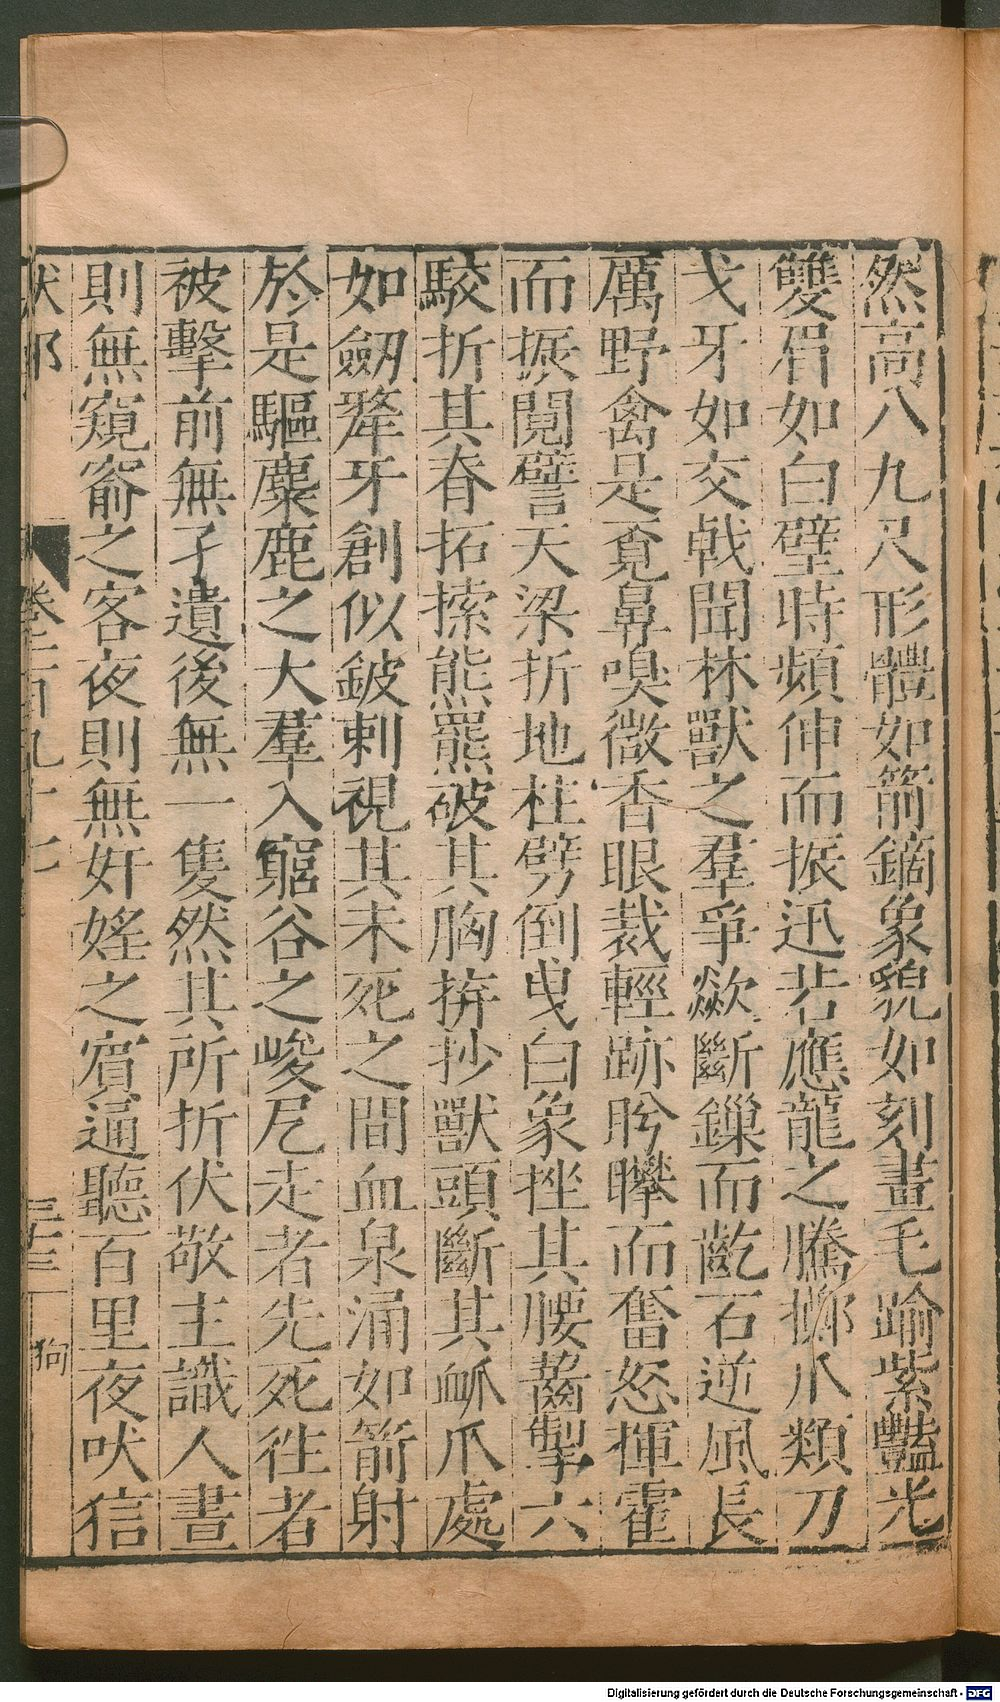 然高八九尺形體如箭鏑象貌如刻畫毛踰紫豔光
雙眉如白壁時頻伸而振迅若應龍之騰擲爪類刀
戈牙如交戟聞林獸之羣爭欻斷鏁而齕石逆風長
厲野禽是覔鼻嗅微香眼裁輕跡盻矔而奮怒揮霍
而振閱譬天梁折地柱劈倒曵白象挫其腰齧掣六
駮折其脊拓摔熊羆破其胸拚抄獸頭斷其衇爪處
如劒犛牙創似鈹刺視其未死之間血泉涌如箭射
於是驅麋鹿之大羣入窮谷之峻凥走者先死徃者
被擊前無孑遺後無一隻然其所折伏敬主識人晝
則無窺窬之客夜則無奸婬之賓逼聽百里夜吠信
卷二百九十七
三十三
狗
Digitalisierung gefördert durch die Deutsche Forschungsgemeinschaft - DFG